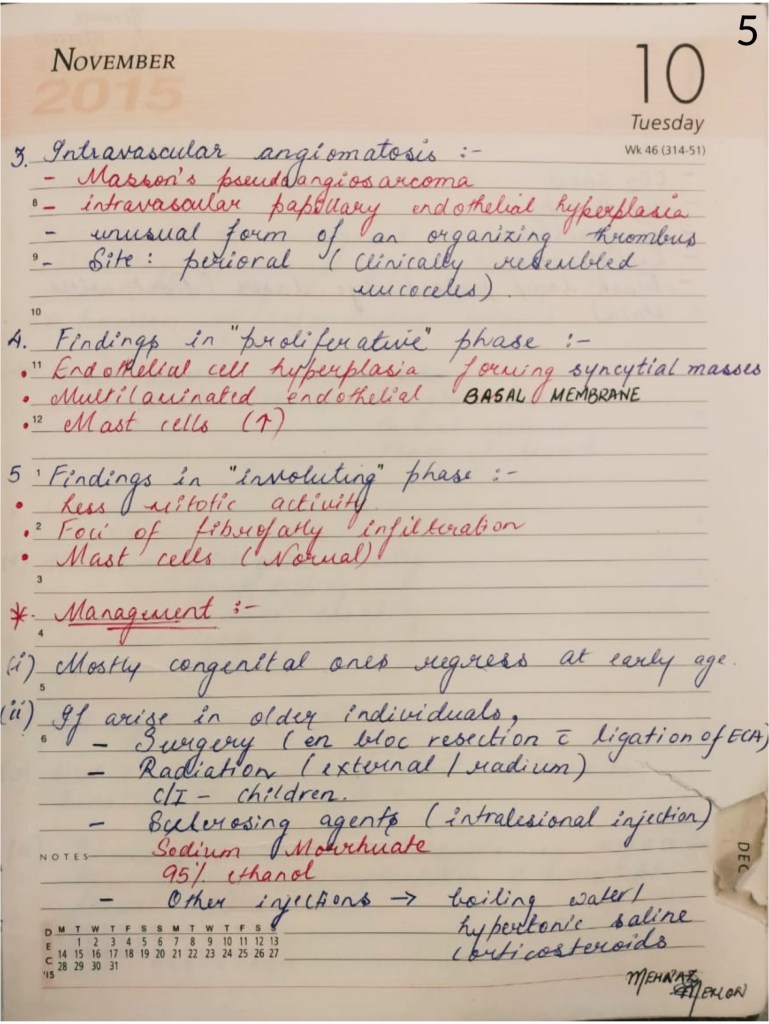 5
NOVEMBER
2015
10
Tuesday
Wk 46 (314-51)
3. Intravascular angiomatosis :-
- Masson's pseudoangiosarcoma
8 - intravascular papillary endothelial hyperplasia
- unusual form of an organizing thrombus
9 - Site : perioral (Clinically resembled
mucoceles).
10
4. Findings in "proliferative" phase :-
• 11 Endothelial cell hyperplasia forming syncytial masses
• Multilaminated endothelial BASAL MEMBRANE
• 12 Mast cells (↑)
5 1 Findings in "involuting" phase :-
• Less mitotic activity
• 2 Foci of fibrofatty infiltration
• Mast cells (Normal)
3
* Management :-
4
(i) Mostly congenital ones regress at early age.
5
(ii) If arise in older individuals,
6 - Surgery (en bloc resection c̄ ligation of ECA)
- Radiation (external / radium)
C/I - children.
- Sclerosing agents (intralesional injection)
NOTES Sodium Morrhuate
95% ethanol
- Other injections → boiling water/
hypertonic saline
corticosteroids
DEC
DEC '15
M T W T F S S M T W T F S S
1 2 3 4 5 6 7 8 9 10 11 12 13
14 15 16 17 18 19 20 21 22 23 24 25 26 27
28 29 30 31
MEHNAZ
MEMON